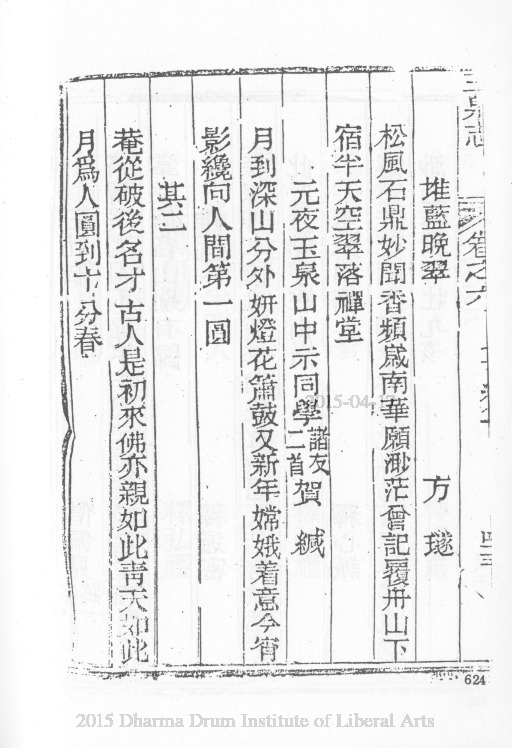 玉泉志
卷之六
堆藍晚翠 方璲
松風石鼎妙聞香頻蔵南華願渺茫曾記覆舟山下
宿半天空翠落禪堂
元夜玉泉山中示同學諸友二首 賀緘
月到深山分外妍燈花簫鼓又新年嫦娥着意今宵
影纔向人間第一圓
其二
菴從破後名才古人是初來佛亦親如此靑天如此
月爲人圓到十分春
624
2015-04-
2015 Dharma Drum Institute of Liberal Arts